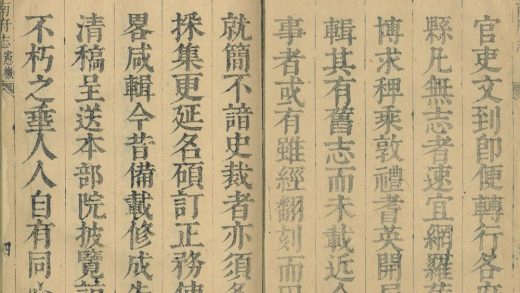 官吏文到即便轉行各府
縣凡無志者速宜網羅
博求稗乘敦禮耆英開局
輯其有舊志而未載近今
事者或有雖經翻刻而
就簡不諳史裁者亦須各
採集更延名碩訂正務使
畧咸輯今昔備載修成先
清稿呈送本部院披覽
不朽之垂人人自有同心
志 憲檄
四